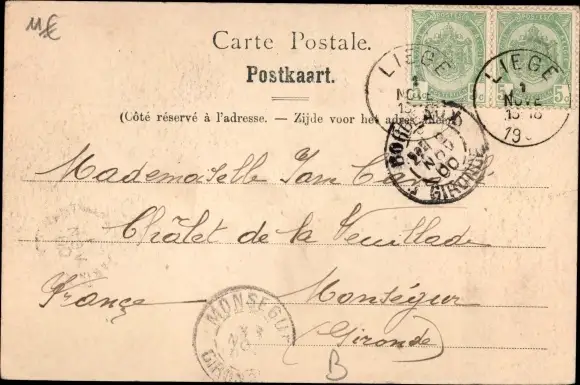 11€
Carte Postale.
Postkaart.
(Côté réservé à l'adresse. — Zijde voor het adres
LIEGE
1
NOVE
LIEGE
1
NOVE
5
5
GIRONDE
Mademoiselle
Châlet de la Feuillade
France Monségur
(Gironde)
MONSEGUR
B